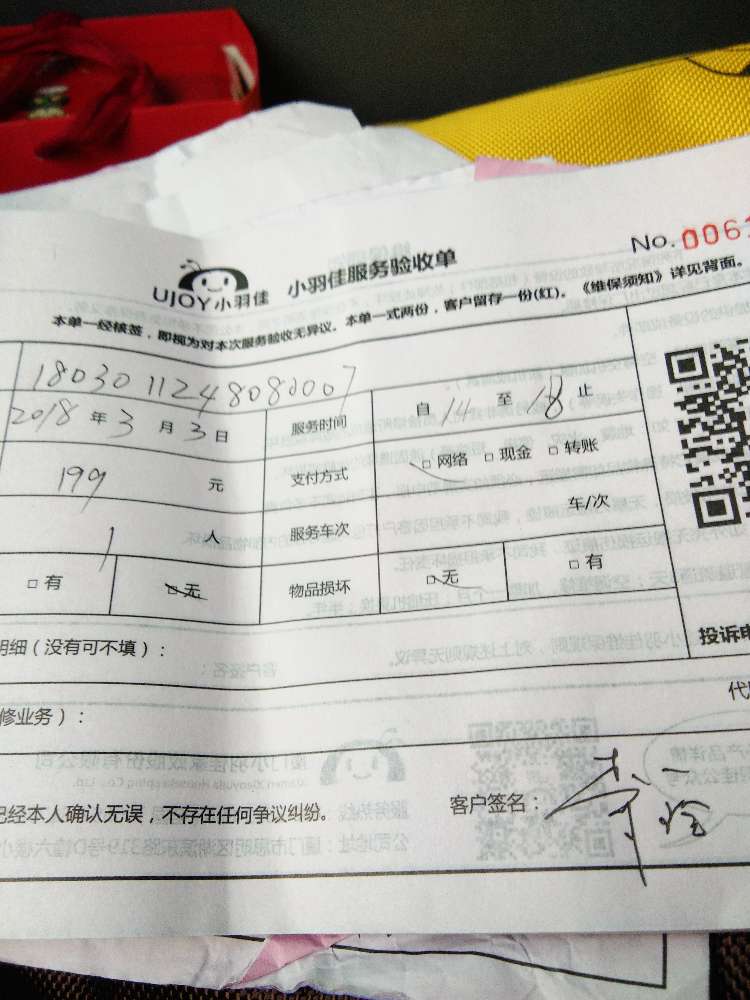 No. 0061
UJOY小羽佳 小羽佳服务验收单
本单一经核签，即视为对本次服务验收无异议。本单一式两份，客户留存一份(红)。《维保须知》详见背面。
1803011248080007
2018 年 3 月 3 日 服务时间 自 14 至 18 止
199 元 支付方式 □ 网络 □ 现金 □ 转账
1 人 服务车次 车/次
□ 有 □ 无 物品损坏 □ 无 □ 有
明细（没有可不填）：
投诉电
修业务）：
已经本人确认无误，不存在任何争议纠纷。
客户签名：